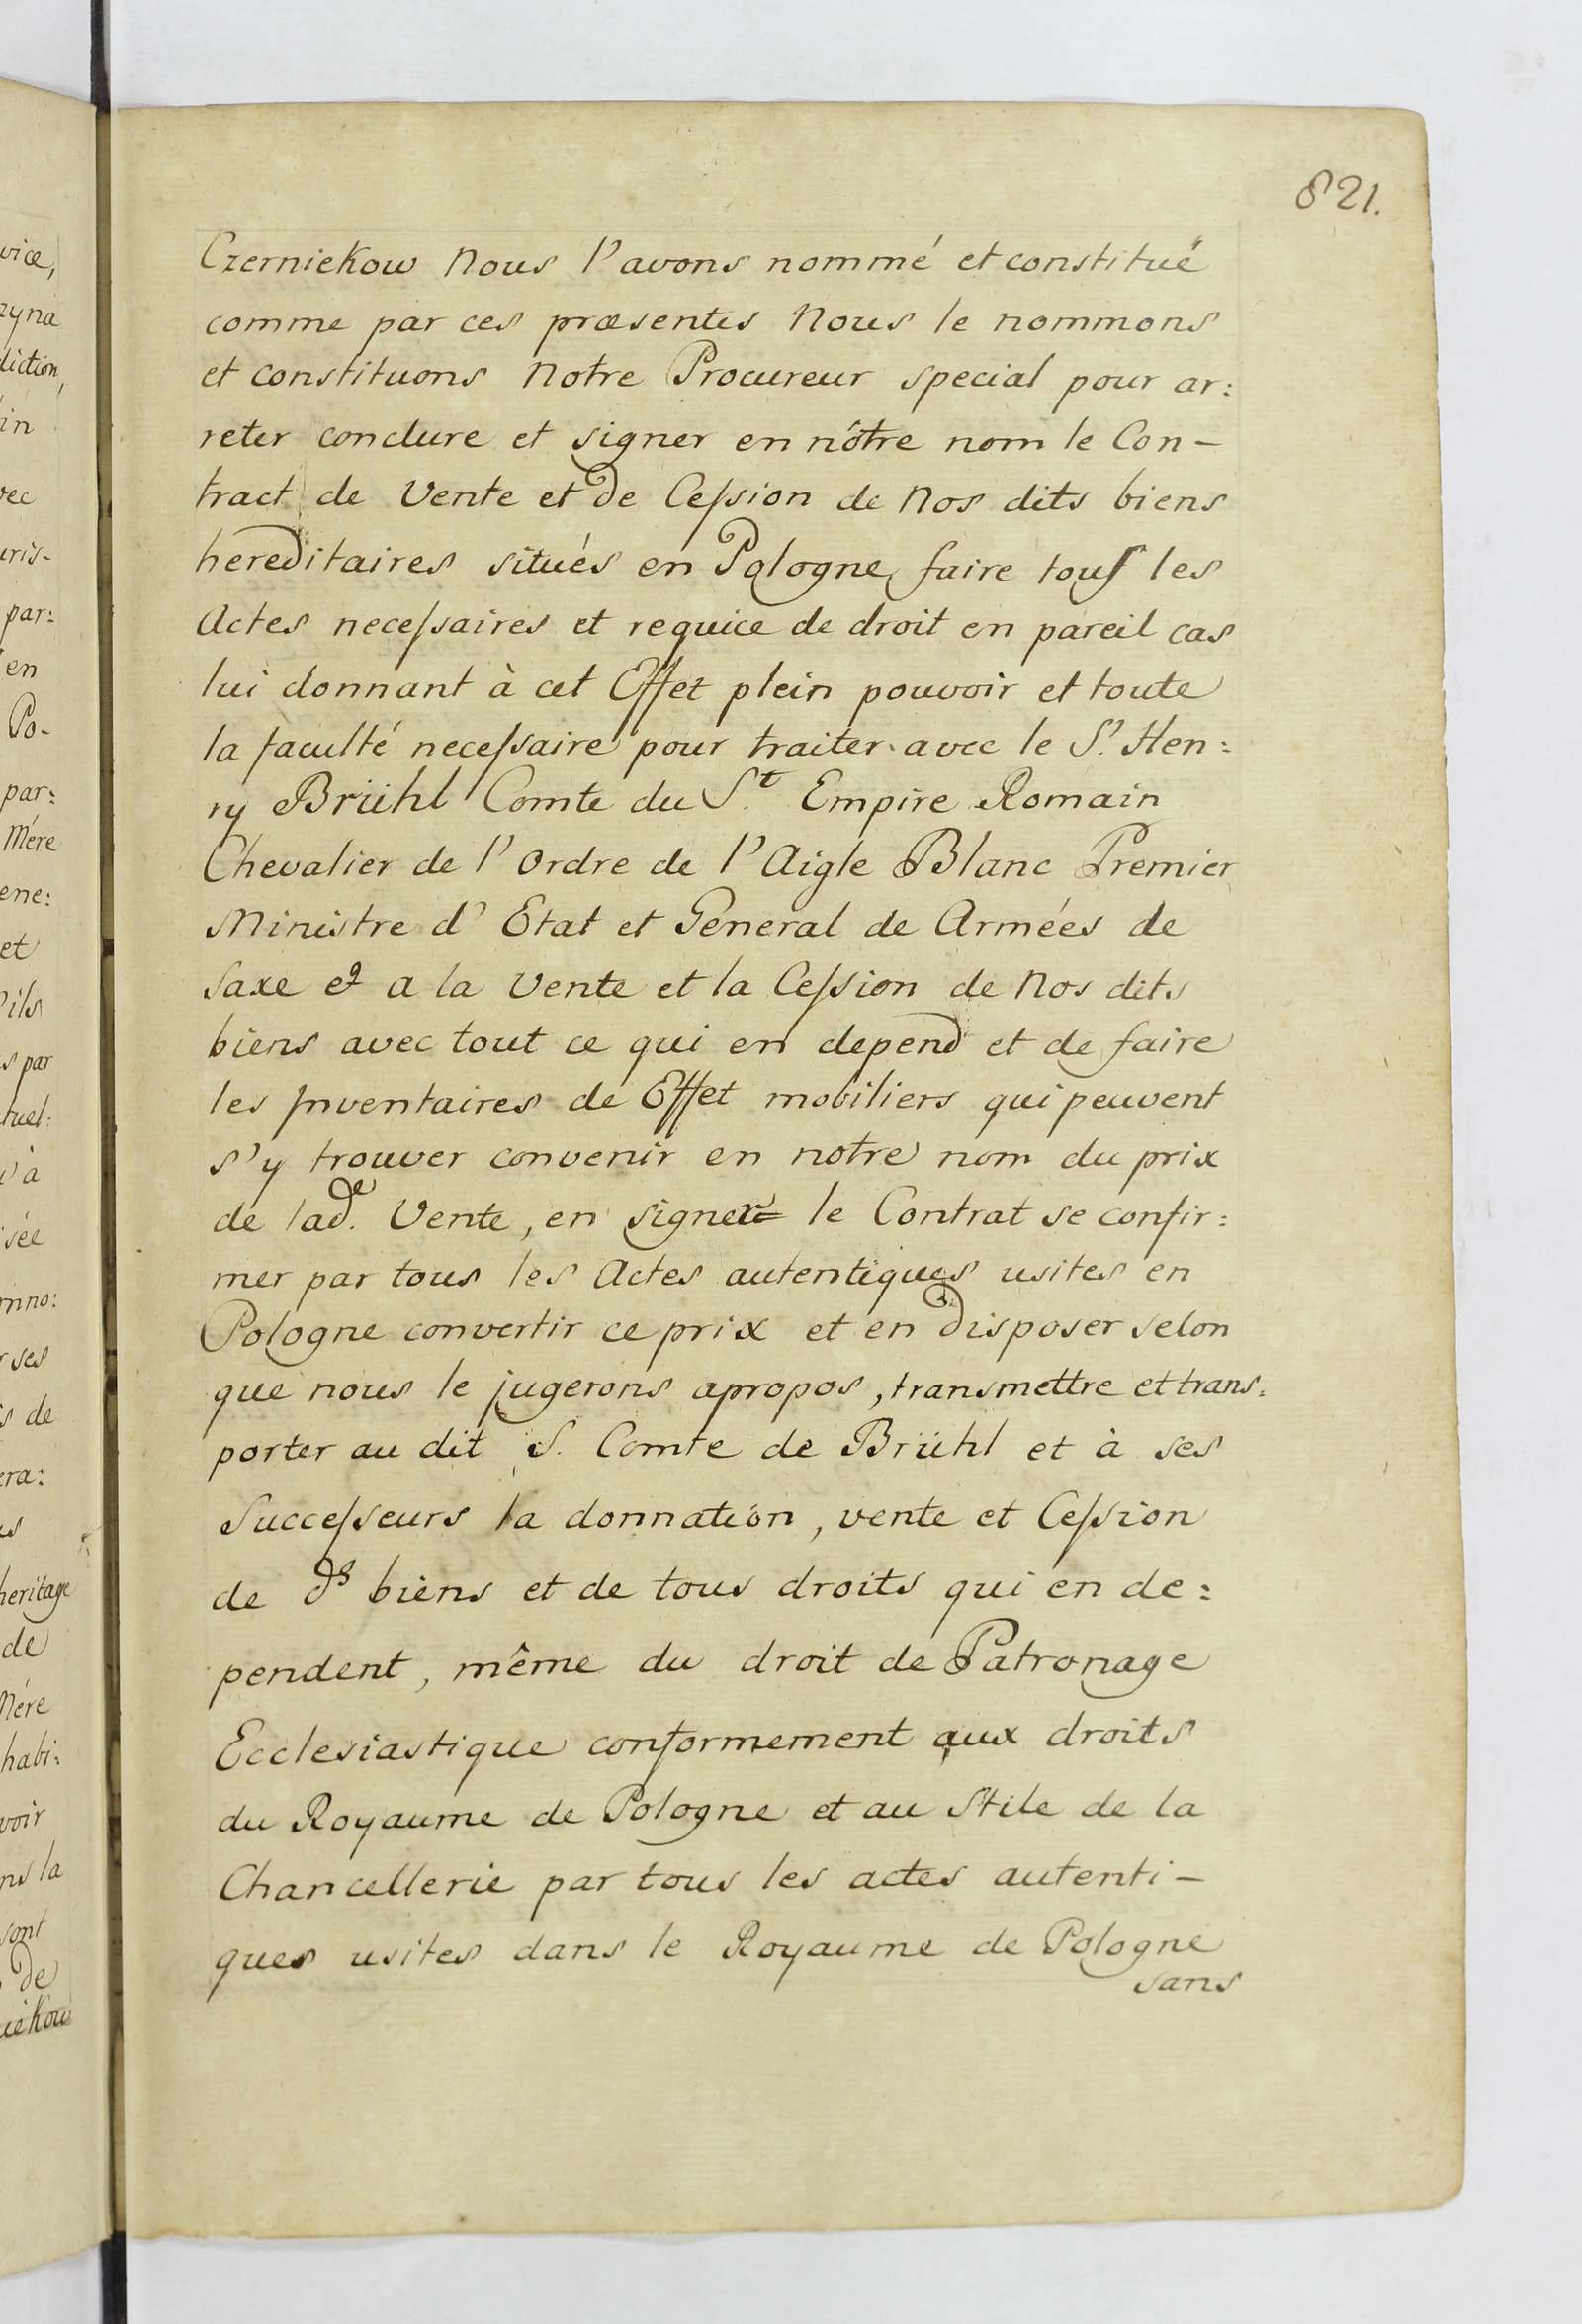 821.
Czerniekow Nous l'avons nommé et constitué
comme par ces præsentes Nous le nommons
et constituons Notre Procureur special pour ar:
reter conclure et signer en nôtre nom le Con-
tract de Vente et de Ceſsion de Nos dits biens
hereditaires situés en Pologne, faire touſ les
Actes neceſsaires et requice de droit en pareil cas
lui donnant à cet Effet plein pouvoir et toute
la faculté neceſsaire pour traiter avec le S. Hen:
ry Brühl Comte du S.t Empire Romain
Chevalier de l'Ordre de l'Aigle Blanc Premier
Ministre d'Etat et General de Armées de
Saxe et a la Vente et la Ceſsion de Nos dits
biens avec tout ce qui en depend et de faire
les Inventaires de Effet mobiliers qui peuvent
s'y trouver convenir en notre nom du prix
de lad.e Vente, en signer le Contrat se confir:
mer par tous les Actes autentiques usites en
Pologne convertir ce prix et en disposer selon
que nous le jugerons apropos, transmettre et trans:
porter au dit S. Comte de Brühl et à ses
Succeſseurs la donnation, vente et Ceſsion
de ds biens et de tous droits qui en de:
pendent, même du droit de Patronage
Ecclesiastique conformement aux droits
du Royaume de Pologne et au Stile de la
Chancellerie par tous les actes autenti-
ques usites dans le Royaume de Pologne
sans
vice,
zyna
diction,
in
vec
uris-
par:
en
Po-
par:
Mére
ene:
et
ils
s par
tuel:
à
sée
mno:
ses
s de
era:
heritage
de
Mére
habi:
voir
ns la
sont
de
iekow